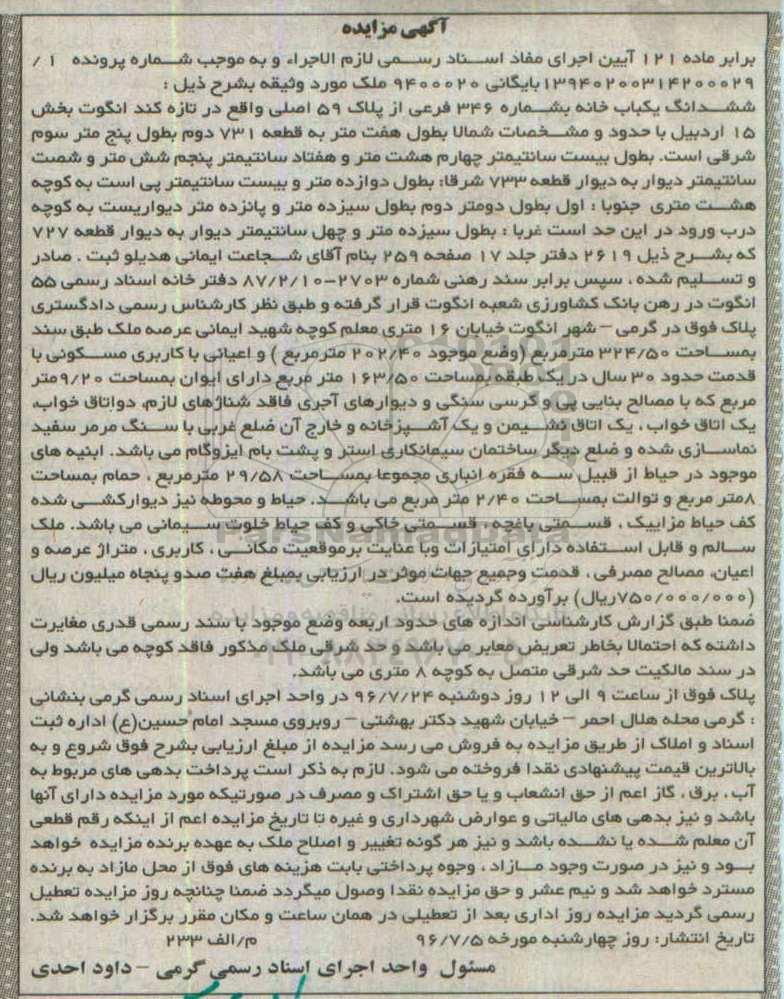 آگهی مزایده
برابر ماده ۱۲۱ آیین اجرای مفاد اسناد رسمی لازم الاجراء و به موجب شماره پرونده ۱ /
۱۳۹۴۰۲۰۰۳۱۴۲۰۰۰۲۹بایگانی ۹۴۰۰۰۲۰ ملک مورد وثیقه بشرح ذیل :
ششدانگ یکباب خانه بشماره ۳۴۶ فرعی از پلاک ۵۹ اصلی واقع در تازه کند انگوت بخش
۱۵ اردبیل با حدود و مشخصات شمالا بطول هفت متر به قطعه ۷۳۱ دوم بطول پنج متر سوم
شرقی است. بطول بیست سانتیمتر چهارم هشت متر و هفتاد سانتیمتر پنجم شش متر و شصت
سانتیمتر دیوار به دیوار قطعه ۷۳۳ شرقا: بطول دوازده متر و بیست سانتیمتر پی است به کوچه
هشت متری جنوبا : اول بطول دومتر دوم بطول سیزده متر و پانزده متر دیواریست به کوچه
درب ورود در این حد است غربا : بطول سیزده متر و چهل سانتیمتر دیوار به دیوار قطعه ۷۲۷
که بشرح ذیل ۲۶۱۹ دفتر جلد ۱۷ صفحه ۲۵۹ بنام آقای شجاعت ایمانی هدیلو ثبت . صادر
و تسلیم شده ، سپس برابر سند رهنی شماره ۲۷۰۳-۸۷/۲/۱۰ دفتر خانه اسناد رسمی ۵۵
انگوت در رهن بانک کشاورزی شعبه انگوت قرار گرفته و طبق نظر کارشناس رسمی دادگستری
پلاک فوق در گرمی – شهر انگوت خیابان ۱۶ متری معلم کوچه شهید ایمانی عرصه ملک طبق سند
بمساحت ۳۲۴/۵۰ مترمربع (وضع موجود ۲۰۲/۴۰ مترمربع ) و اعیانی با کاربری مسکونی با
قدمت حدود ۳۰ سال در یک طبقه بمساحت ۱۶۳/۵۰ متر مربع دارای ایوان بمساحت ۹/۲۰متر
مربع که با مصالح بنایی پی و کرسی سنگی و دیوارهای آجری فاقد شناژهای لازم، دواتاق خواب،
یک اتاق خواب ، یک اتاق نشیمن و یک آشپزخانه و خارج آن ضلع غربی با سنگ مرمر سفید
نماسازی شده و ضلع دیگر ساختمان سیمانکاری آستر و پشت بام ایزوگام می باشد. ابنیه های
موجود در حیاط از قبیل سه فقره انباری مجموعا بمساحت ۲۹/۵۸ مترمربع ، حمام بمساحت
۸متر مربع و توالت بمساحت ۲/۴۰ متر مربع می باشد. حیاط و محوطه نیز دیوارکشی شده
کف حیاط مزاییک ، قسمتی باغچه ، قسمتی خاکی و کف حیاط خلوت سیمانی می باشد. ملک
سالم و قابل استفاده دارای امتیازات وبا عنایت برموقعیت مکانی ، کاربری ، متراژ عرصه و
اعیان، مصالح مصرفی ، قدمت وجمیع جهات موثر در ارزیابی بمبلغ هفت صدو پنجاه میلیون ریال
(۷۵۰/۰۰۰/۰۰۰ریال) برآورده گردیده است.
ضمنا طبق گزارش کارشناسی اندازه های حدود اربعه وضع موجود با سند رسمی قدری مغایرت
داشته که احتمالا بخاطر تعریض معابر می باشد و حد شرقی ملک مذکور فاقد کوچه می باشد ولی
در سند مالکیت حد شرقی متصل به کوچه ۸ متری می باشد.
پلاک فوق از ساعت ۹ الی ۱۲ روز دوشنبه ۹۶/۷/۲۴ در واحد اجرای اسناد رسمی گرمی بنشانی
: گرمی محله هلال احمر – خیابان شهید دکتر بهشتی – روبروی مسجد امام حسین(ع) اداره ثبت
اسناد و املاک از طریق مزایده به فروش می رسد مزایده از مبلغ ارزیابی بشرح فوق شروع و به
بالاترین قیمت پیشنهادی نقدا فروخته می شود. لازم به ذکر است پرداخت بدهی های مربوط به
آب ، برق ، گاز اعم از حق انشعاب و یا حق اشتراک و مصرف در صورتیکه مورد مزایده دارای آنها
باشد و نیز بدهی های مالیاتی و عوارض شهرداری و غیره تا تاریخ مزایده اعم از اینکه رقم قطعی
آن معلم شده یا نشده باشد و نیز هر گونه تغییر و اصلاح ملک به عهده برنده مزایده خواهد
بود و نیز در صورت وجود مازاد ، وجوه پرداختی بابت هزینه های فوق از محل مازاد به برنده
مسترد خواهد شد و نیم عشر و حق مزایده نقدا وصول میگردد ضمنا چنانچه روز مزایده تعطیل
رسمی گردید مزایده روز اداری بعد از تعطیلی در همان ساعت و مکان مقرر برگزار خواهد شد.
تاریخ انتشار: روز چهارشنبه مورخه ۹۶/۷/۵ م/الف ۲۳۳
مسئول واحد اجرای اسناد رسمی گرمی – داود احدی